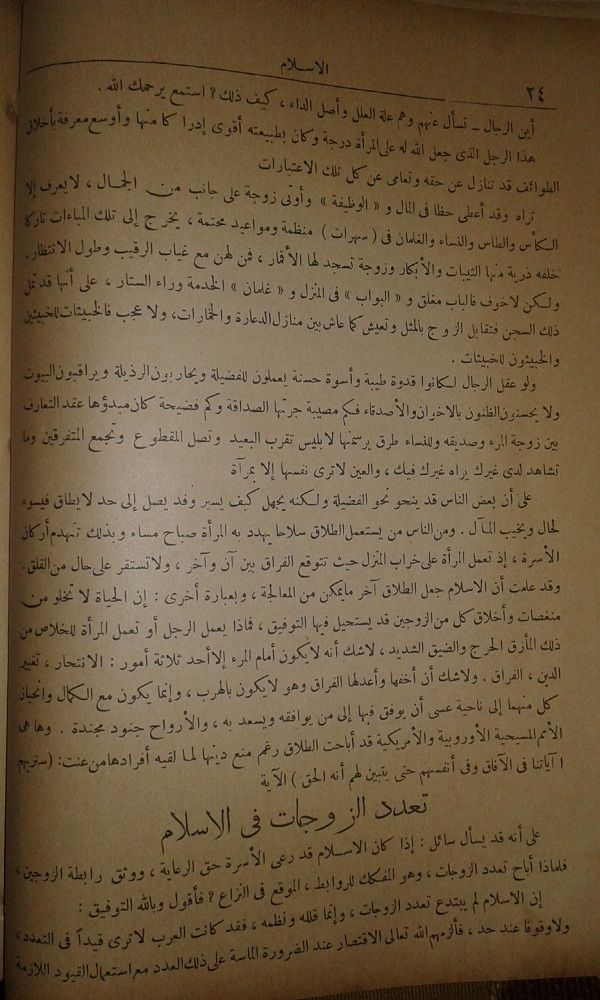 الاسلام
٢٤
أين الرجال ــ نسأل عنهم وهم علة العلل وأصل الداء ، كيف ذلك ? استمع يرحمك الله .
هذا الرجل الذى جعل الله له على المرأة درجة وكان بطبيعته أقوى إدراكا منها وأوسع معرفة بأخلاق
الطوائف قد تنازل عن حقه وتعامى عن كل تلك الاعتبارات
تراه وقد أعطى حظا فى المال و « الوظيفة » وأوتى زوجة على جانب من الجمال ، لايعرف إلا
الكأس والطاس والنساء والغلمان فى ( سهرات ) منظمة ومواعيد محتمة ، يخرج إلى تلك المباءات تاركا
خلفه ذرية منها الثيبات والأبكار وزوجة تسجد لها الأقمار ، فمن لهن مع غياب الرقيب وطول الانتظار.
ولكن لاخوف فالباب مغلق و « البواب » فى المنزل و « غلمان » الخدمة وراء الستار ، على أنها قد تمل
ذلك السجن فتقابل الزوج بالمثل وتعيش كما عاش بين منازل الدعارة والخمارات، ولا عجب فالخبيثات للخبيثين
والخبيثون للخبيثات .
ولو عقل الرجال لكانوا قدوة طيبة وأسوة حسنة يعملون للفضيلة ويحاربون الرذيلة ويراقبون البيوت
ولا يحسنون الظنون بالاخوان والأصدقاء فكم مصيبة جرتها الصداقة وكم فضيحة كان مبدؤها عقد التعارف
بين زوجة المرء وصديقه وللنساء طرق يرسمنها لابليس تقرب البعيد وتصل المقطوع وتجمع المتفرقين وما
تشاهد لدى غيرك يراه غيرك فيك ، والعين لاترى نفسها إلا بمرآة
على أن بعض الناس قد ينحو نحو الفضيلة ولكنه يجهل كيف يسير وقد يصل إلى حد لايطاق فيسوء
لحال ويخيب المآل . ومن الناس من يستعمل الطلاق سلاحا يهدد به المرأة صباح مساء وبذلك تنهدم أركان
الأسرة ، إذ تعمل المرأة على خراب المنزل حيث تتوقع الفراق بين آن وآخر ، ولا تستقر على حال من القلق.
وقد علمت أن الاسلام جعل الطلاق آخر مايمكن من المعالجة ، وبعبارة أخرى : إن الحياة لا تخلو من
منغصات وأخلاق كل من الزوجين قد يستحيل فيها التوفيق ، فماذا يعمل الرجل أو تعمل المرأة للخلاص من
ذلك المأزق الحرج والضيق الشديد ، لاشك أنه لايكون أمام المرء إلا أحد ثلاثة أمور : الانتحار ، تغيير
الدين ، الفراق . ولاشك أن أخفها وأعدلها الفراق وهو لايكون بالهرب ، وإنما يكون مع الكمال وانحياز
كل منهما إلى ناحية عسى أن يوفق فيها إلى من يوافقه ويسعد به ، والأرواح جنود مجندة . وها هى
الأمم المسيحية الأوروبية والأمريكية قد أباحت الطلاق رغم منع دينها لما لقيه أفرادها من عنت: (سنريهم
ا آياتنا فى الآفاق وفى أنفسهم حتى يتبين لهم أنه الحق ) الآية
تعدد الزوجات فى الاسلام
على أنه قد يسأل سائل : إذا كان الاسلام قد رعى الأسرة حق الرعاية ، ووثق رابطة الزوجين ،
فلماذا أباح تعدد الزوجات ، وهو المفكك للروابط ، الموقع فى النزاع ? فأقول وبالله التوفيق :
إن الاسلام لم يبتدع تعدد الزوجات ، وإنما قلله ونظمه ، فقد كانت العرب لاترى قيداً فى التعدد ،
ولا وقوفا عند حد ، فألزمهم الله تعالى الاقتصار عند الضرورة الماسة على ذلك العدد مع استعمال القيود اللازمة